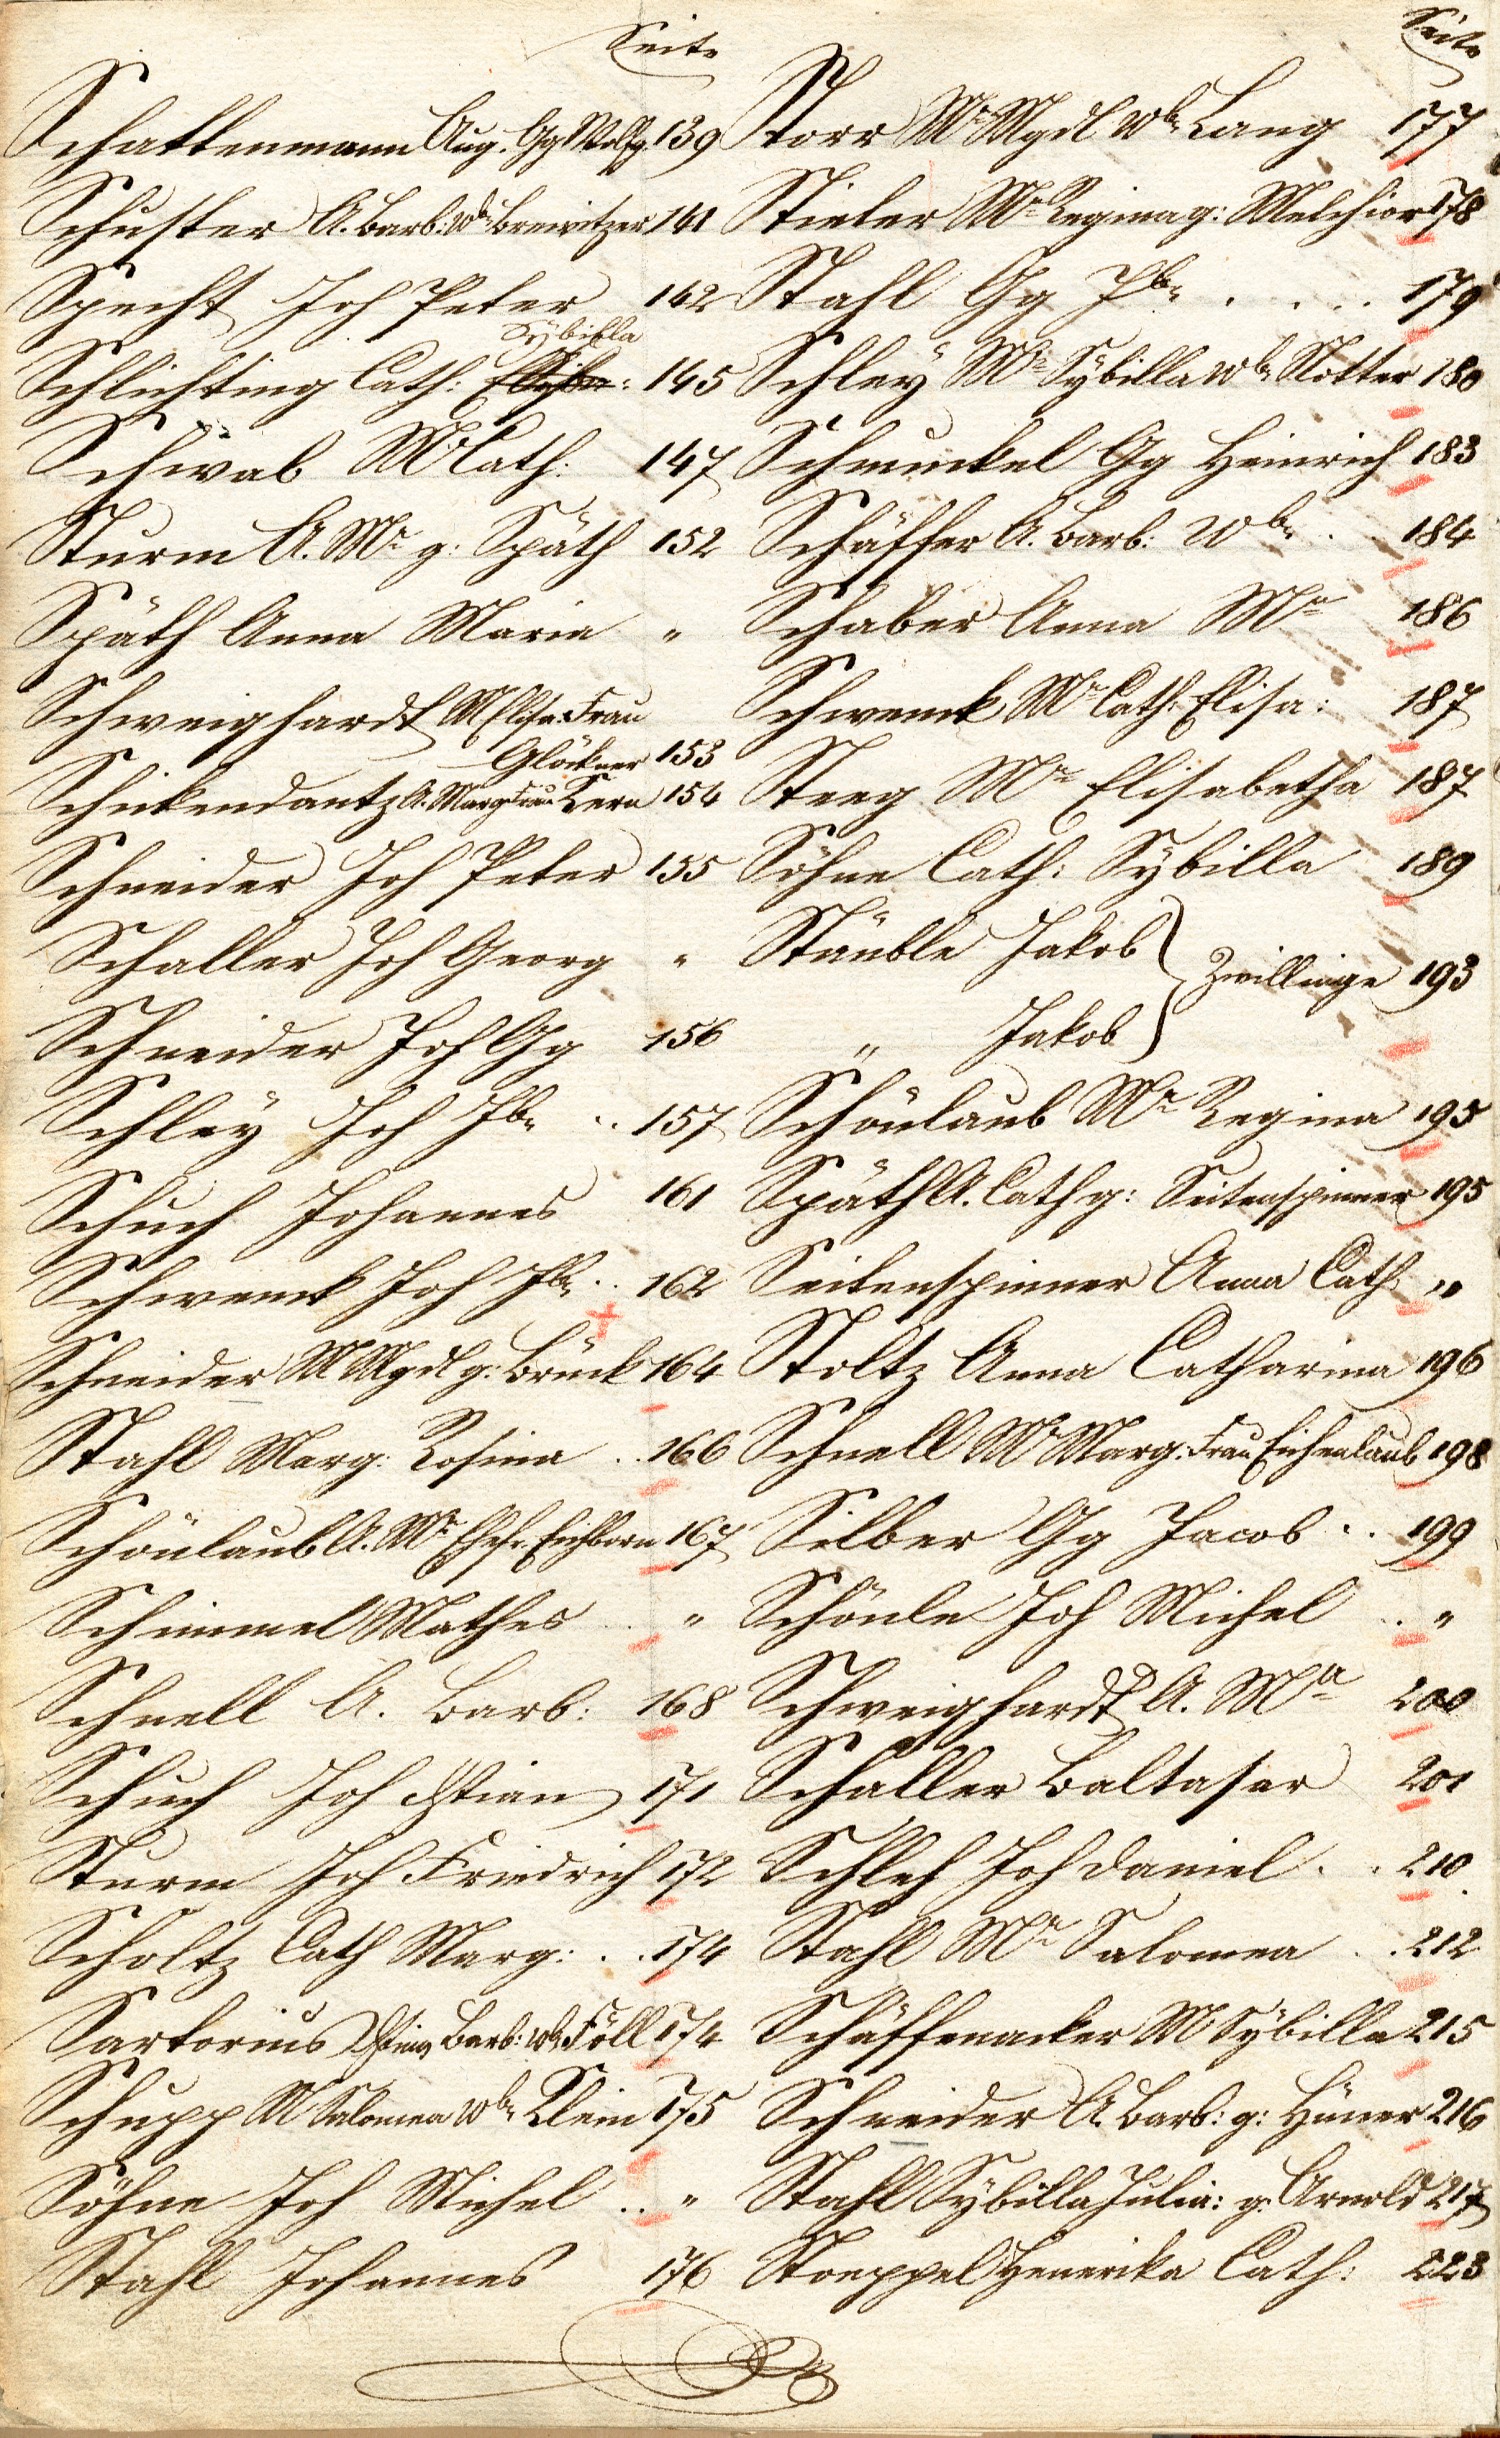 Seite
Schattenmann Aug. Gg Wolfg. 139
Schuster A. Barb: Wbe Breivitzer 141
Specht Joh Peter 142
Sybilla
Schlichting Cath: 145
Schwab M Cath: 147
Sturm A. Ma g: Späth 152
Späth Anna Maria "
Schweighardt M Elisa: Frau
Glöckner 153
Schickendantz A. Marg Frau Kern 154
Schneider Joh Peter 155
Schaller Joh Georg "
Schneider Joh Gg 156
Schley Joh Jbe .. 157
Schuch Johannes 161
Schwenk Joh Jbe .. 162
Schneider M Mgdl g: Brück 164
Stahl Marg: Rosina .. 166
Schönlaub A. Ma Ehefr. Eichborn 167
Schimmel Mathes "
Schnell A. Barb: 168
Schuch Joh Xstian 171
Sturm Joh Friedrich 172
Scholtz Cath Marg: .. 174
Sartorius Xstina Barb: Wbe Föll 174
Schupp M Salomea Wbe Klein 175
Söhne Joh Michel .. "
Stahl Johannes 176
Seite
Storr Ma Mgdl Wbe Lang 177
Stieler Ma Regina g: Melchior 178
Stahl Gg Jbe . . . . 179
Schley Ma Sybilla Wbe Notter 180
Schmunckel Gg Heinrich 183
Schäffer A. Barb: Wbe . . 184
Schaber Anna Ma 186
Schwenck Ma Cath: Elisa: 187
Steeg Ma Elisabetha 187
Söhne Cath: Sybilla 189
Stäuble Jakob
Zwillinge 193
" Jakob
Schönlaub Ma Regina 195
Späth A. Cath g: Seitenspinner 195
Seitenspinner Anna Cath: "
Stoltz Anna Catharina 196
Schnell Ma Marg: Frau Eichenlaub 198
Silber Gg Jacob .. 199
Schönle Joh Michel .. "
Schweighardt A. Ma 200
Schaller Baltasar 201
Schleh Joh Daniel . . 210
Stahl Ma Salomea . . 212
Schäffenacker M Sybilla 215
Schneider A. Barb: g: Hüner 216
Stahl Sybilla Julia: g: Arnold 217
Stoeppel Henerika Cath: 223